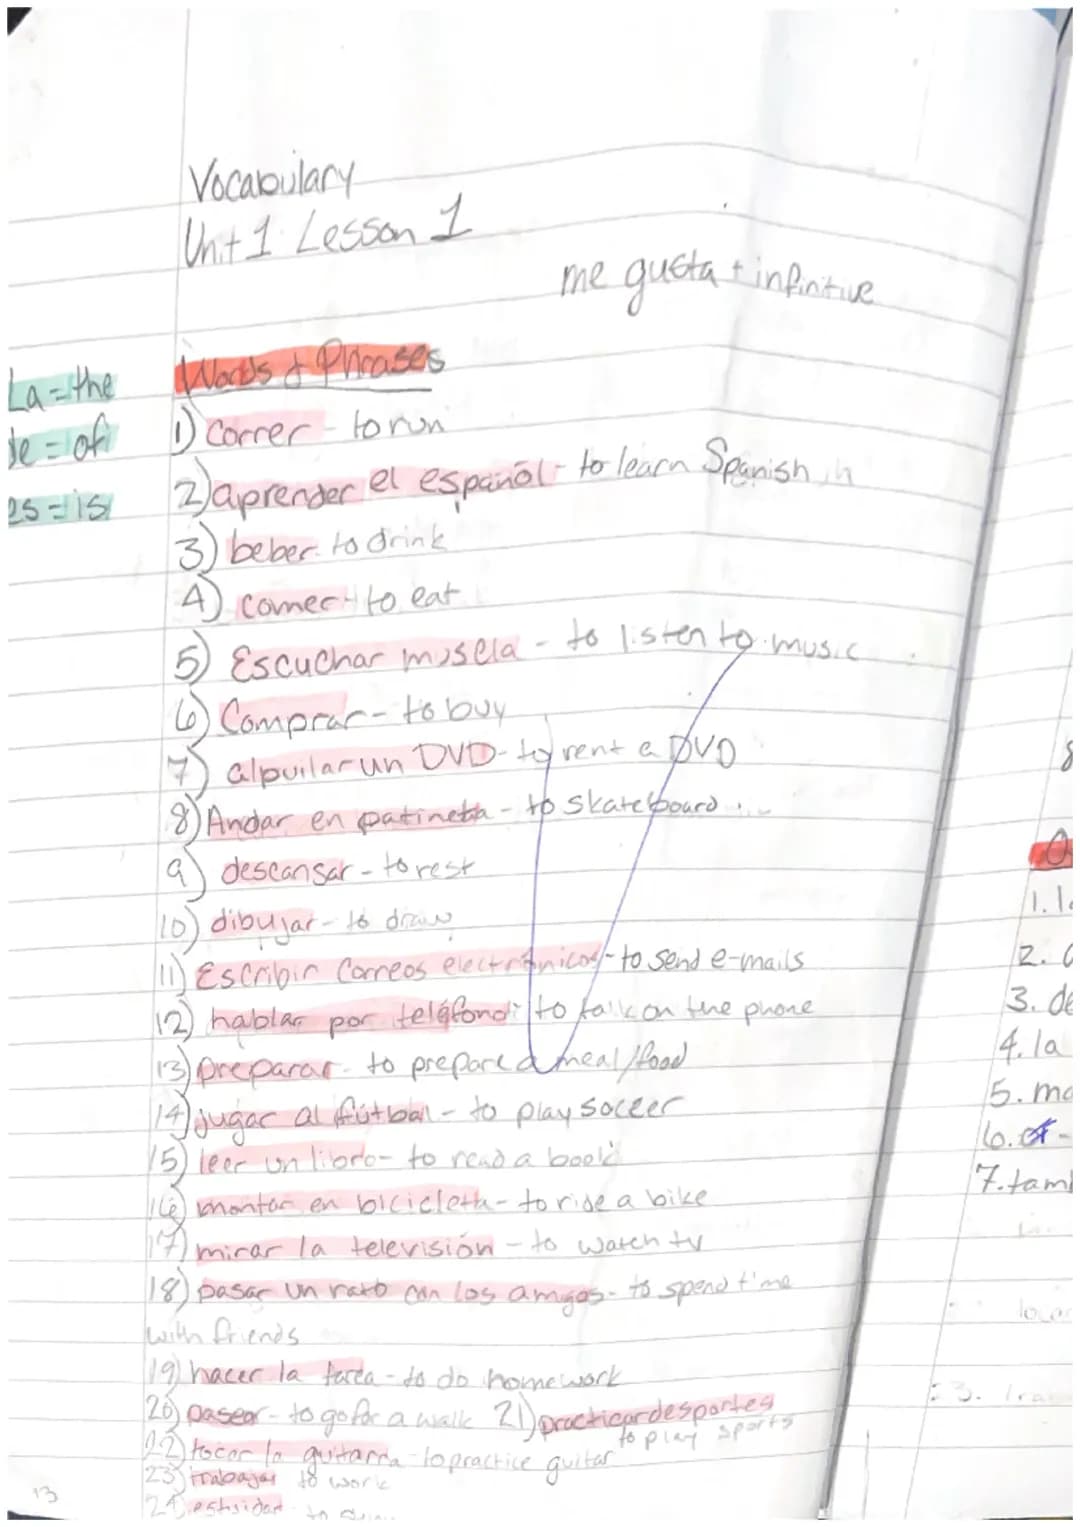 Vocabulary
Unit 1 Lesson 1
me gusta + infinitive
La = the
de = of
es = is
Words & Phrases
1) Correr - to run
2) aprender el español - to learn Spanish
3) beber - to drink
4) comer - to eat
5) Escuchar musela - to listen to music
6) Comprar - to buy
7) alpuilar un DVD - to rent a DVD
8) Andar en patineta - to skateboard
9) descansar - to rest
10) dibujar - to draw
11) Escribir Correos electrónicos - to send e-mails
12) hablar por teléfono - to talk on the phone
13) preparar - to prepare a meal/food
14) jugar al fútbal - to play soccer
15) leer un libro - to read a book
16) montar en bicicleta - to ride a bike
17) mirar la televisión - to watch tv
18) pasar un rato con los amigos - to spend time
with friends
19) hacer la tarea - to do homework
20) pasear - to go for a walk 21) practicar desportes
to play sports
22) tocar la guitarra - to practice guitar
23) trabajar to work
24)
13
1. l
2.
3. de
4. la
5. ma
6.
7. tam